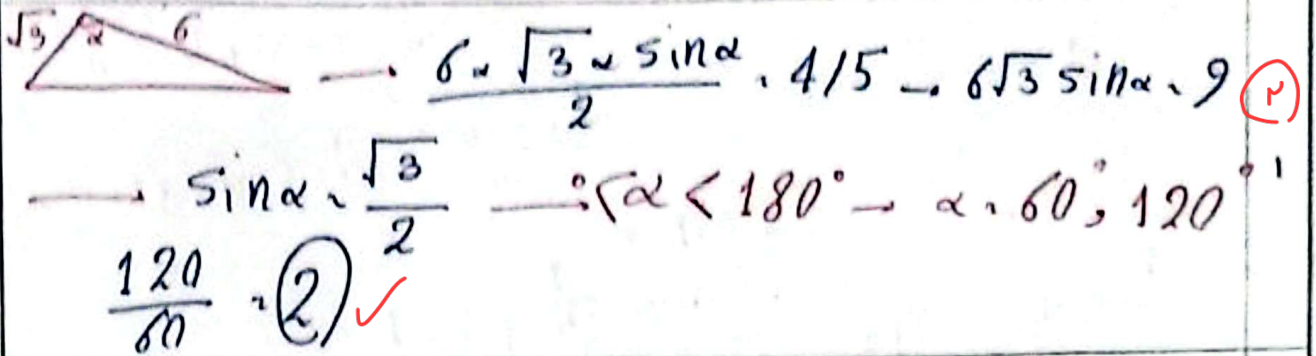 √3 α 6 → (6 × √3 × sinα)/2 = 4/5 → 6√3 sinα = 9 ۲
→ sinα = √3/2 → 0 < α < 180° → α = 60°, 120° ۱
120/60 = 2 ✓